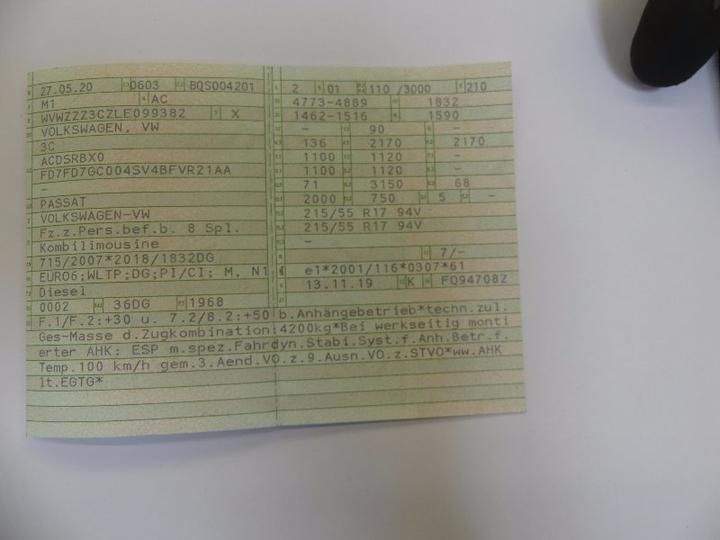 27.05.20 0603 BQS004201
M1 AC
WVWZZZ3CZLE099382 X
VOLKSWAGEN, VW
3C
ACDSRBX0
FD7FD7GC004SV4BFVR21AA
–
PASSAT
VOLKSWAGEN-VW
Fz.z.Pers.bef.b. 8 Spl.
Kombilimousine
715/2007*2018/1832DG
EURO6;WLTP;DG;PI/CI; M, N1 I
Diesel
0002 36DG 1968
2 01 110 /3000 210
4773-4889 1832
1462-1516 1590
– 90 –
136 2170 2170
1100 1120 –
1100 1120 –
71 3150 68
2000 750 5 –
215/55 R17 94V
215/55 R17 94V
–
7/–
e1*2001/116*0307*61
13.11.19 K FQ947082
F.1/F.2:+30 u. 7.2/8.2:+50 b.Anhängebetrieb*techn.zul.
Ges-Masse d.Zugkombination:4200kg*Bei werkseitig monti
erter AHK: ESP m.spez.Fahrdyn.Stabi.Syst.f.Anh.Betr.f.
Temp.100 km/h gem.3.Aend.VO.z.9.Ausn.VO.z.STVO*ww.AHK
lt.EGTG*